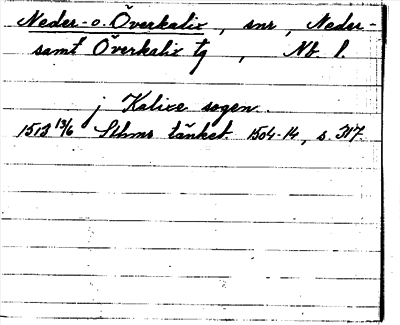 Neder- o. Överkalix, snr, Neder-
samt Överkalix tg, Nb. l.
j Kalixe sogen.
1513 13/6 Sthms tänkeb. 1504-14, s.